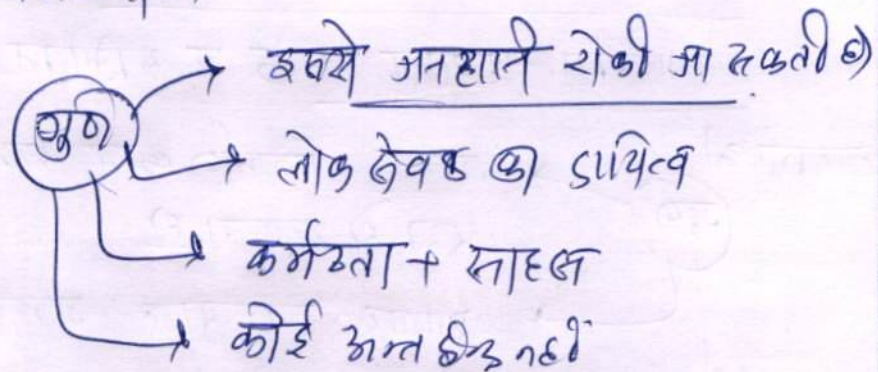 इससे जनहानि रोकी जा सकती है
गुण
लोक सेवक का दायित्व
कर्मठता + साहस
कोई अन्तर्द्वन्द्व नहीं